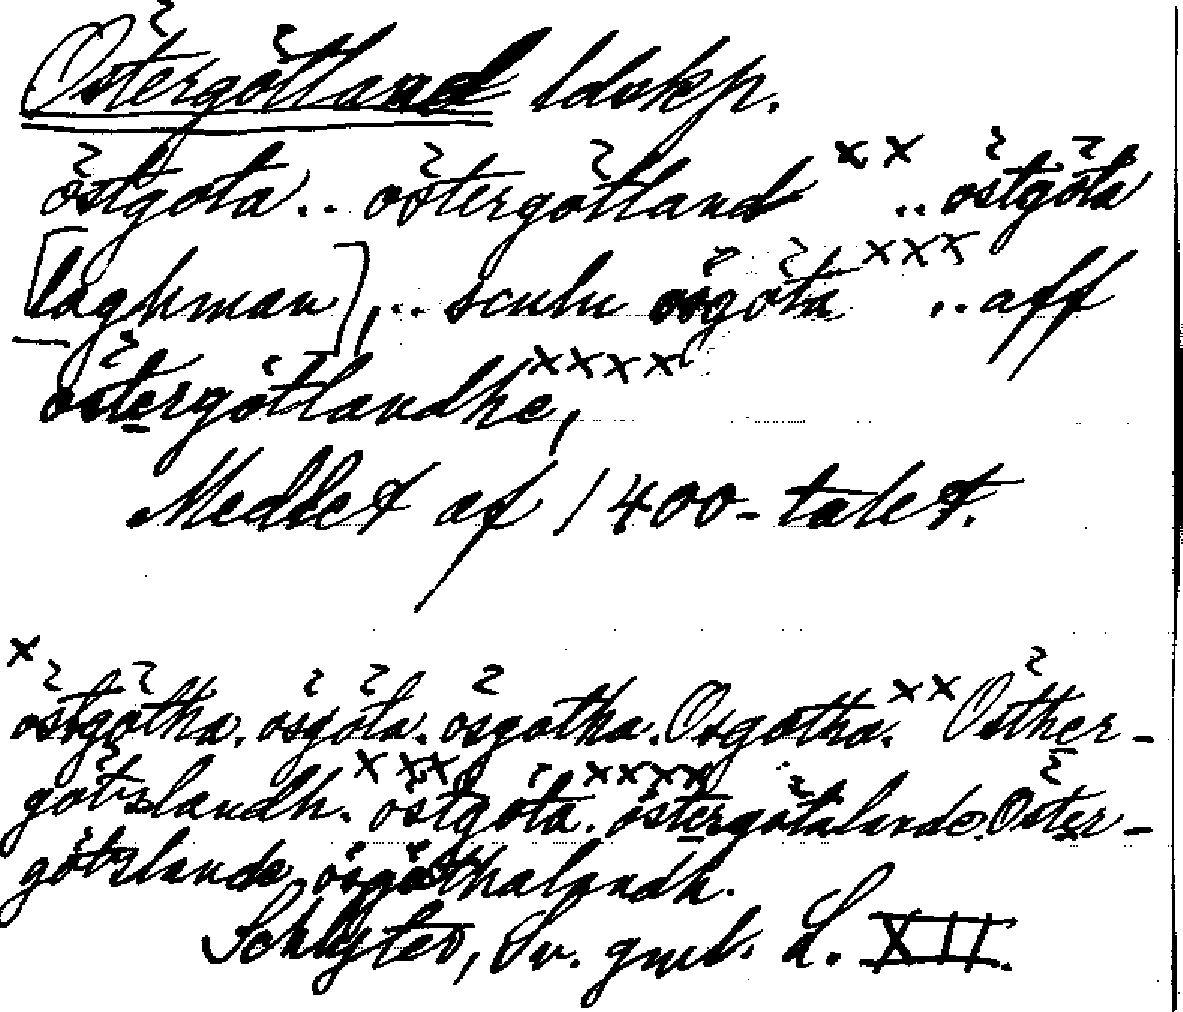 Östergötland ldskp.
östgöta .. östergötland xx .. östgöta
[laghman], .. sculu osgöta xxx .. aff
östergötlandhe, xxxx
Medlet af 1400-talet.
x östgötha. osgöta. osgotha. Osgotha. xxÖsther-
götzlandh. xxx östgöta. xxxx östergötalande. Öster-
götzlande osgöthalandh.
Schlyter, Sv. gml. L. XII.